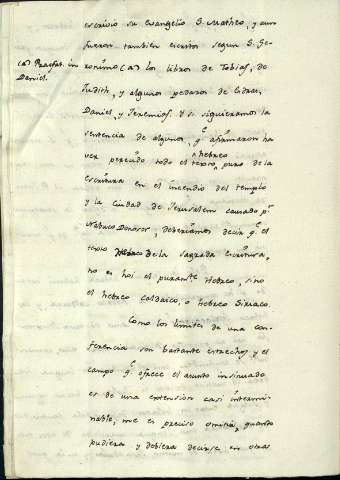 escrivio su evangelio S. Matheo, y aun
fueron tambien escritos segun S. Ge-
(a) Praefat. in
Daniel.
ronimo (a) los libros de Tobias, de
Judith, y algunos pedazos de Esdras,
Daniel, y Jeremias. Y si siguieramos la
sentencia de algunos, q.e afirmaron ha
ver perecido todo el texto hebreo puro de la
escritura en el incendio del templo
y la ciudad de Jerusalem causado p.r
Nabuco Donosor, deberiamos decir q.e el
texto Hebreo de la sagrada escritura,
no es hoi el puram.te Hebreo, sino
el hebreo caldaico, o Hebreo Siriaco.
Como los limites de una con-
ferencia son bastante estrechos, y el
campo q.e ofrece el asunto insinuado
es de una extension casi intermi-
nable, me es preciso omitir, quanto
pudiera y debiera decirse en otras